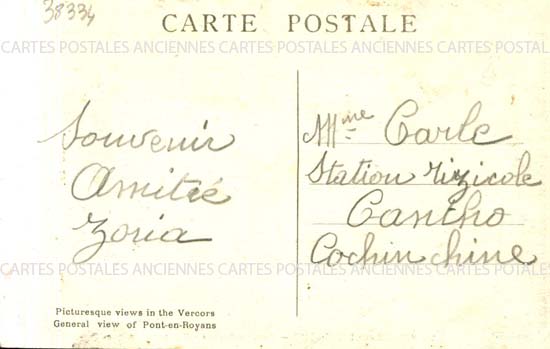 38334
CARTE POSTALE
CARTES POSTALES ANCIENNES CARTES POSTALES ANCIENNES CARTES POSTALES
Souvenir
Amitié
Zoria
Mme Carle
Station rizicole
Cantho
Cochinchine
CARTES POSTALES ANCIENNES CARTES POSTALES ANCIENNES CARTES POSTALES
Picturesque views in the Vercors
General view of Pont-en-Royans